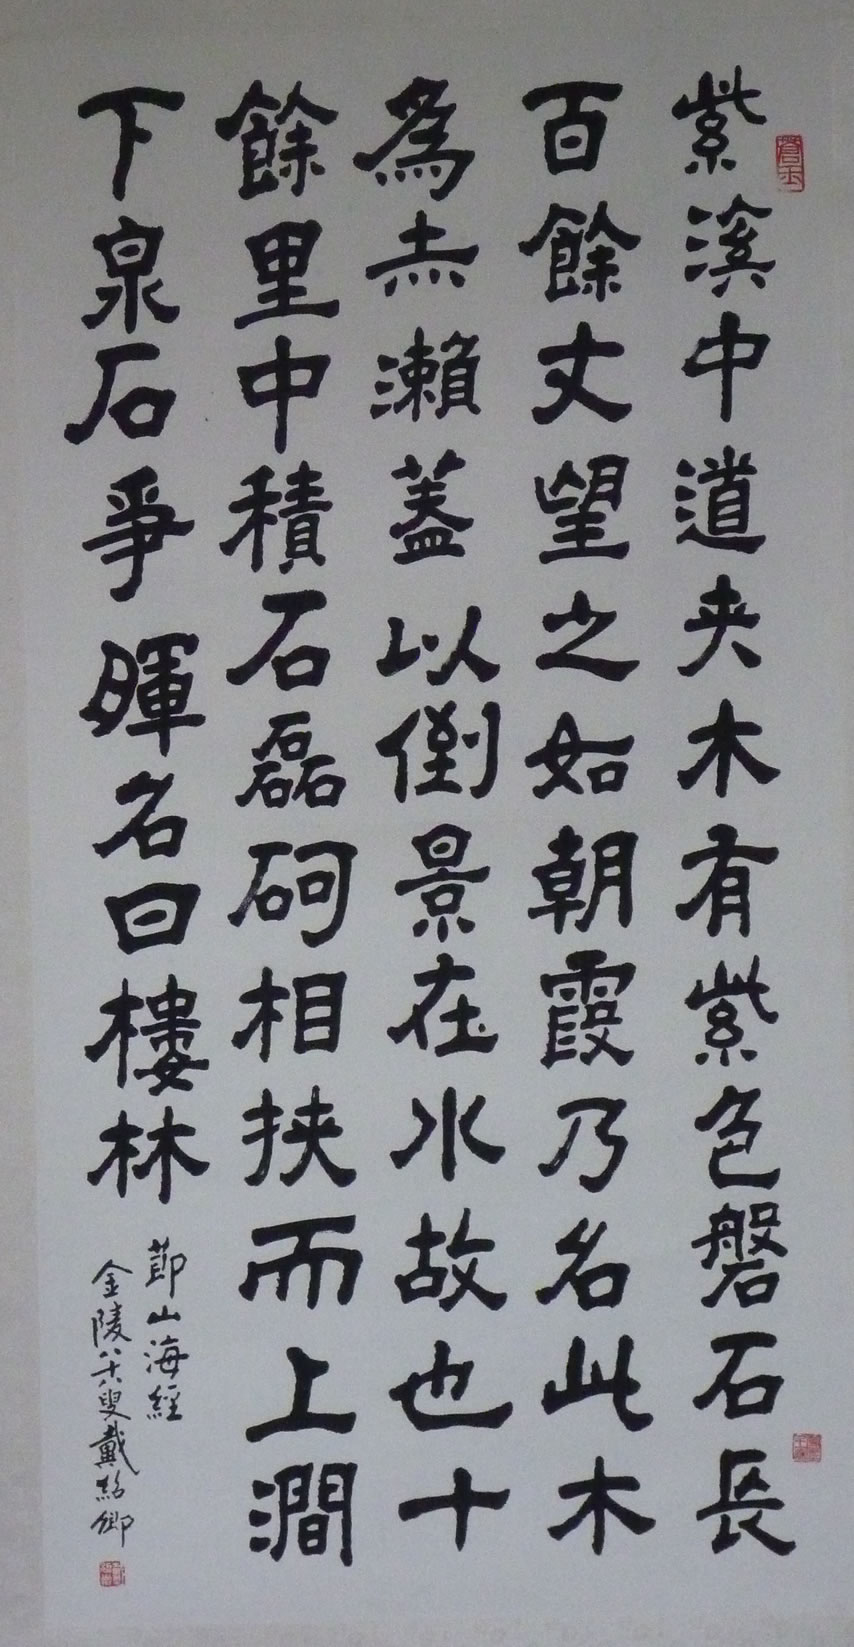 紫溪中道夹木有紫色磐石長
百餘丈望之如朝霞乃名此木
為赤瀨蓋以倒景在水故也十
餘里中積石磊砢相挟而上澗
下泉石爭暉名曰樓林
節山海經
金陵八十八叟戴紹卿